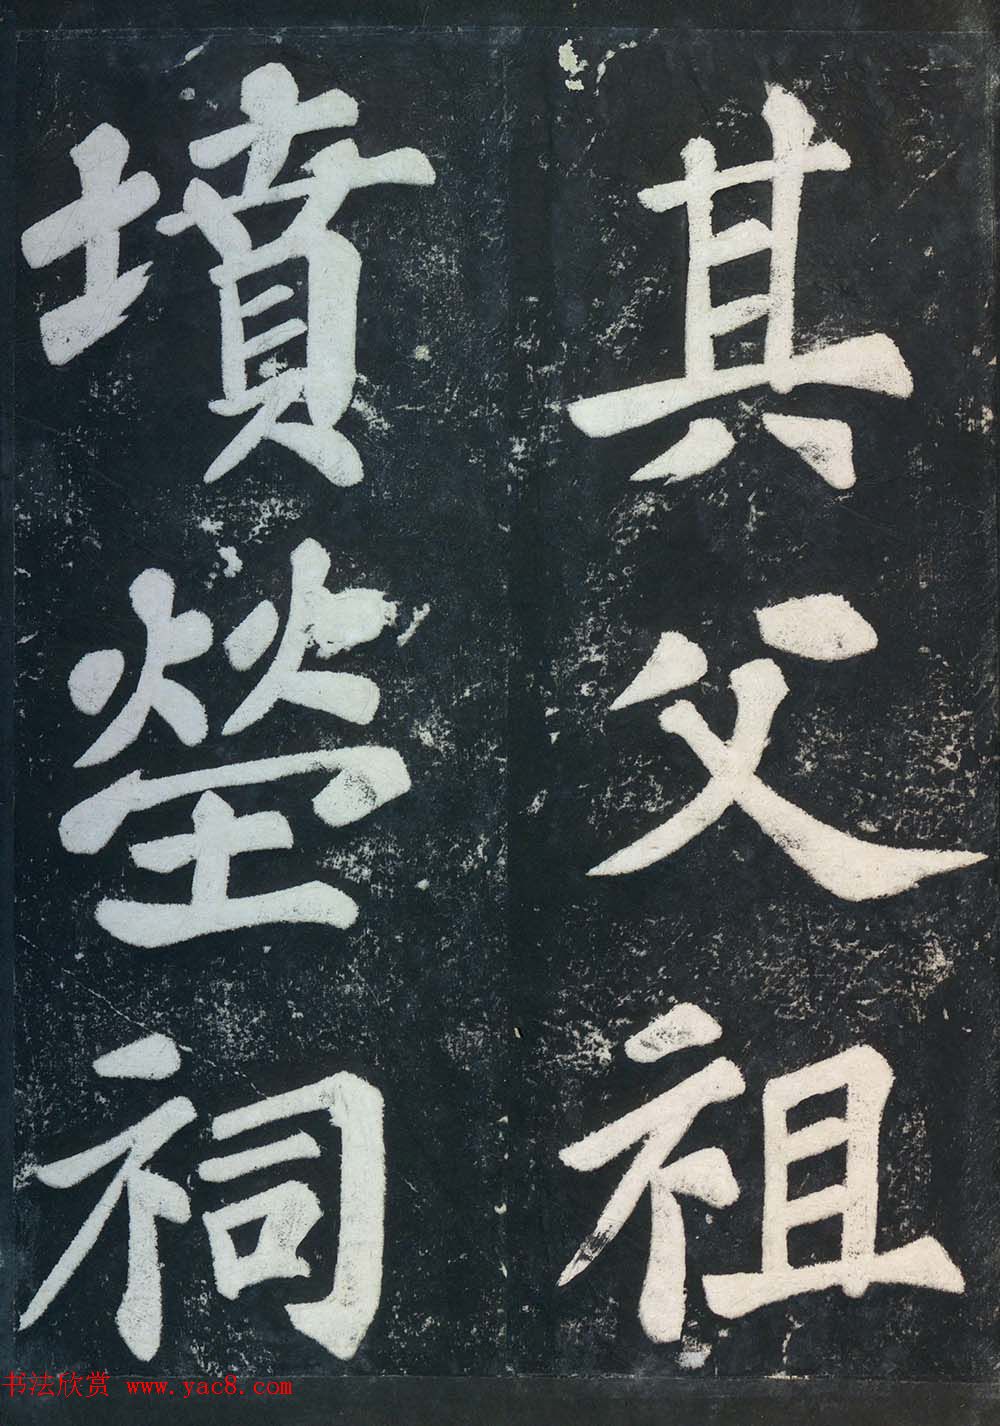 其父祖
墳塋祠
书法欣赏 www.yac8.com